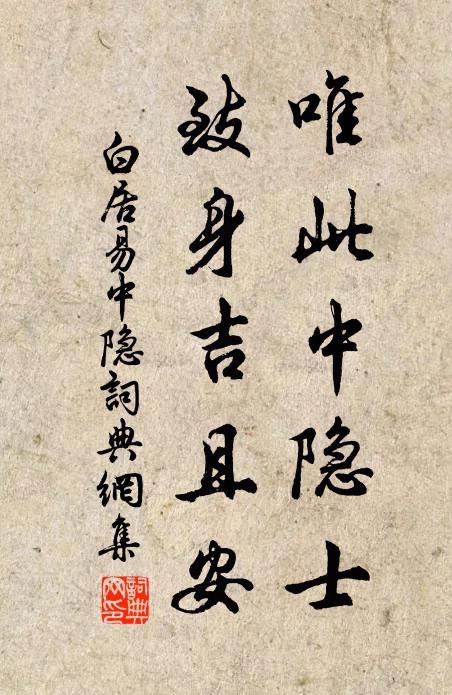 唯此中隐士
致身吉且安
白居易中隐詞典網集
詞典网印